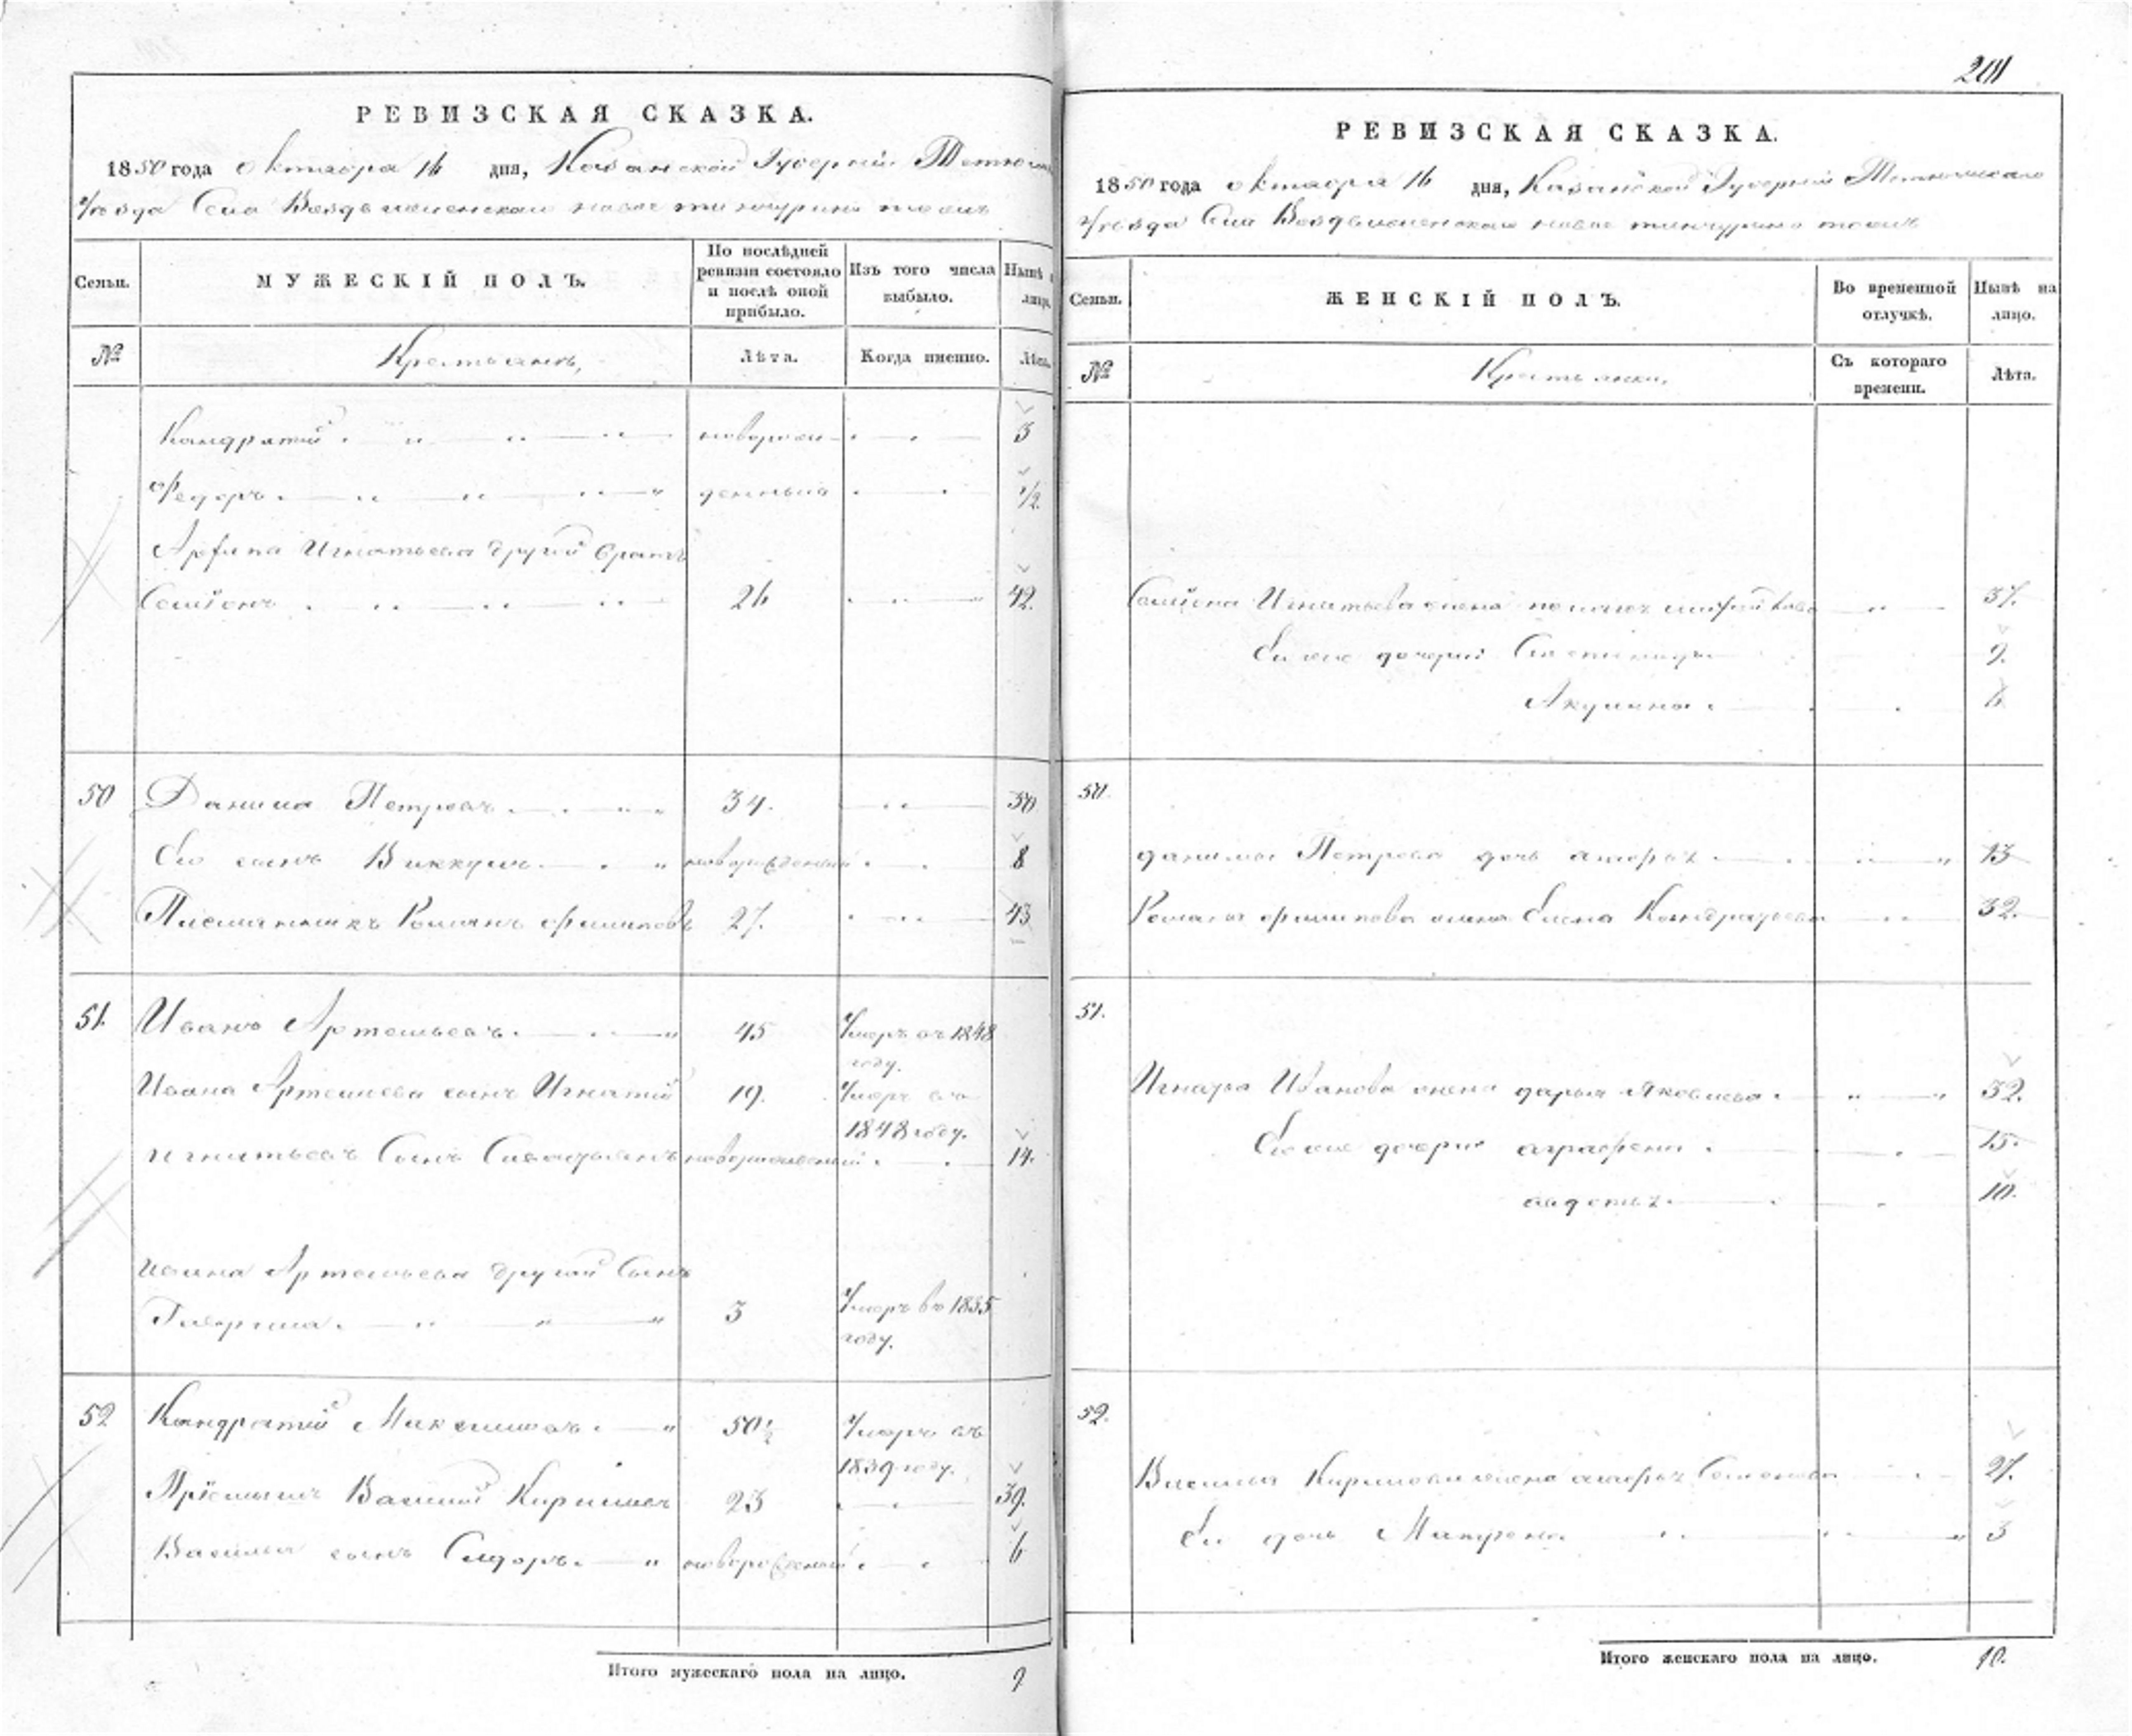 РЕВИЗСКАЯ СКАЗКА.
1850 года октября 16 дня, Казанской Губернии
уезда Села Воздвиженскаго новое тинчурино тожъ
Семьи. МУЖЕСКІЙ ПОЛЪ. По послѣдней ревизіи состояло и послѣ оной прибыло. Изъ того числа выбыло. Нынѣ
№ Крестьянъ, Лѣта. Когда именно. Лѣта.
Кондратий новорож- 3
Федоръ денныя 1/2
Игнатьева другой братъ
Семионъ 26 42.
50 Данила Петровъ 34. 50
Его сынъ новорожденный 8
Романъ Филиповъ 27. 43
51. Иванъ Артемьевъ 45 Умеръ въ 1848 году.
Ивана Артемиева сынъ Игнатий 19. Умеръ въ 1848 году.
Игнатьевъ Сынъ новорожденный 14.
Ивана Артемьева другой Сынъ
Гаврила 3 Умеръ въ 1835 году.
52 Кондратий Максимовъ 50 1/2 Умеръ въ 1839 году.
Приемышъ Василий Кириловъ 23 39.
Василья сынъ Сидоръ новорожденный 6
Итого мужескаго пола на лицо. 9
201
РЕВИЗСКАЯ СКАЗКА.
1850 года октября 16 дня, Казанской Губернии Тетюшскаго
уезда Села Воздвиженскаго новое тинчурино тожъ
Семьи. ЖЕНСКІЙ ПОЛЪ. Во временной отлучкѣ. Нынѣ на лицо.
№ Крестьянки, Съ котораго времени. Лѣта.
Семиона Игнатьева жена 37.
дочери 9.
Акулина 6
50.
Данилы Петрова дочь 13
Романа Филипова жена Елена Кондратьева 32.
51.
Иванова жена Дарья Яковлева 32.
дочери Аграфена 15.
10.
52.
Василья Кирилова жена Семенова 27.
Ея дочь Матрена 3
Итого женскаго пола на лицо. 10.